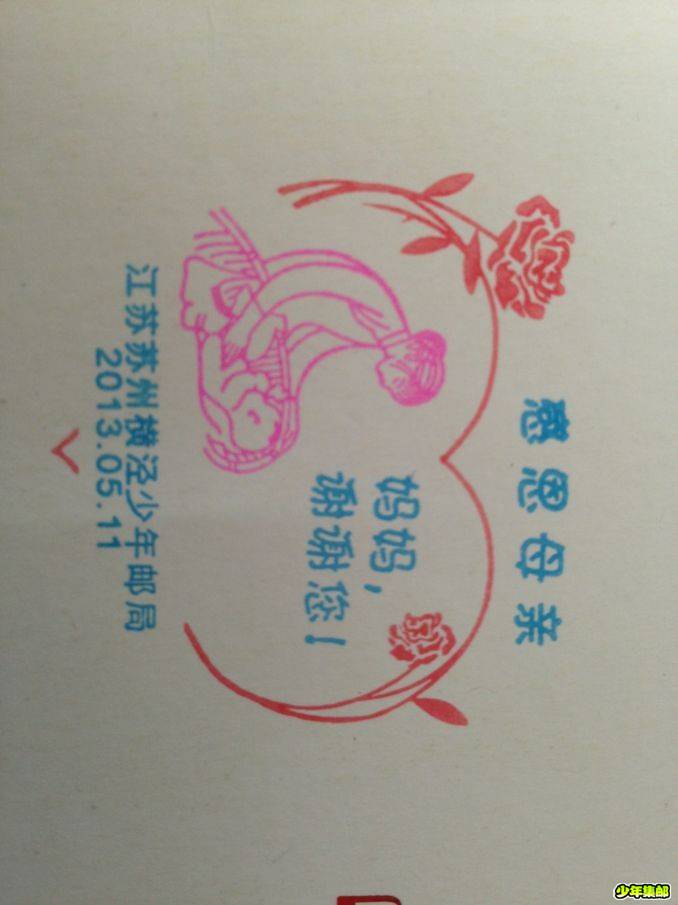 感恩母亲
妈妈，
谢谢您！
江苏苏州横泾少年邮局
2013.05.11
少年集邮